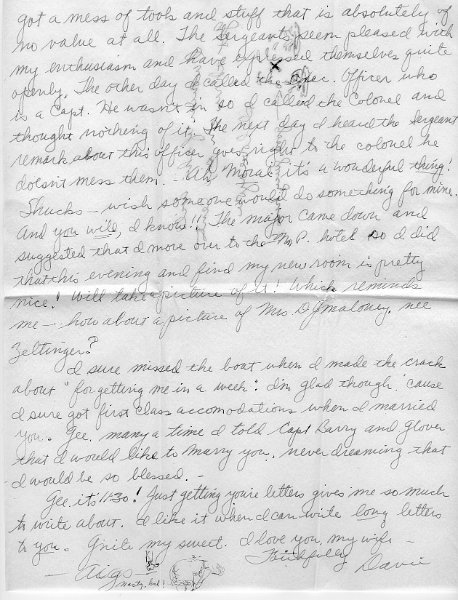 got a mess of tools and stuff that is absolutely of
no value at all. The Sergeants seem pleased with
my enthusiasm and have expressed themselves quite
openly. The other day I called the Officer who
is a Capt. He wasn't in so I called the Colonel and
thought nothing of it. The next day I heard the Sergeant
remark about this officer goes right to the colonel he
doesn't mess them. - Ah Morale it's a wonderful thing!
Shucks - wish someone would do something for mine.
And you will, I know!! The major came down and
suggested that I move over to the M.P. hotel so I did
that this evening and find my new room is pretty
nice! Will take a picture of it! Which reminds
me - how about a picture of Mrs. D J Maloney, nee
Zeltinger?
I sure missed the boat when I made the crack
about "forgetting me in a week". I'm glad though, cause
I sure got first class accomodations when I married
you. Gee, many a time I told Capt Barry and Glover
that I would like to marry you, never dreaming that
I would be so blessed. -
Gee, it's 11:30! Just getting you're letters gives me so much
to write about. I like it when I can write long letters
to you. G'nite my sweet. I love you, my wife -
Faithfully
Davie
nasty, kid!